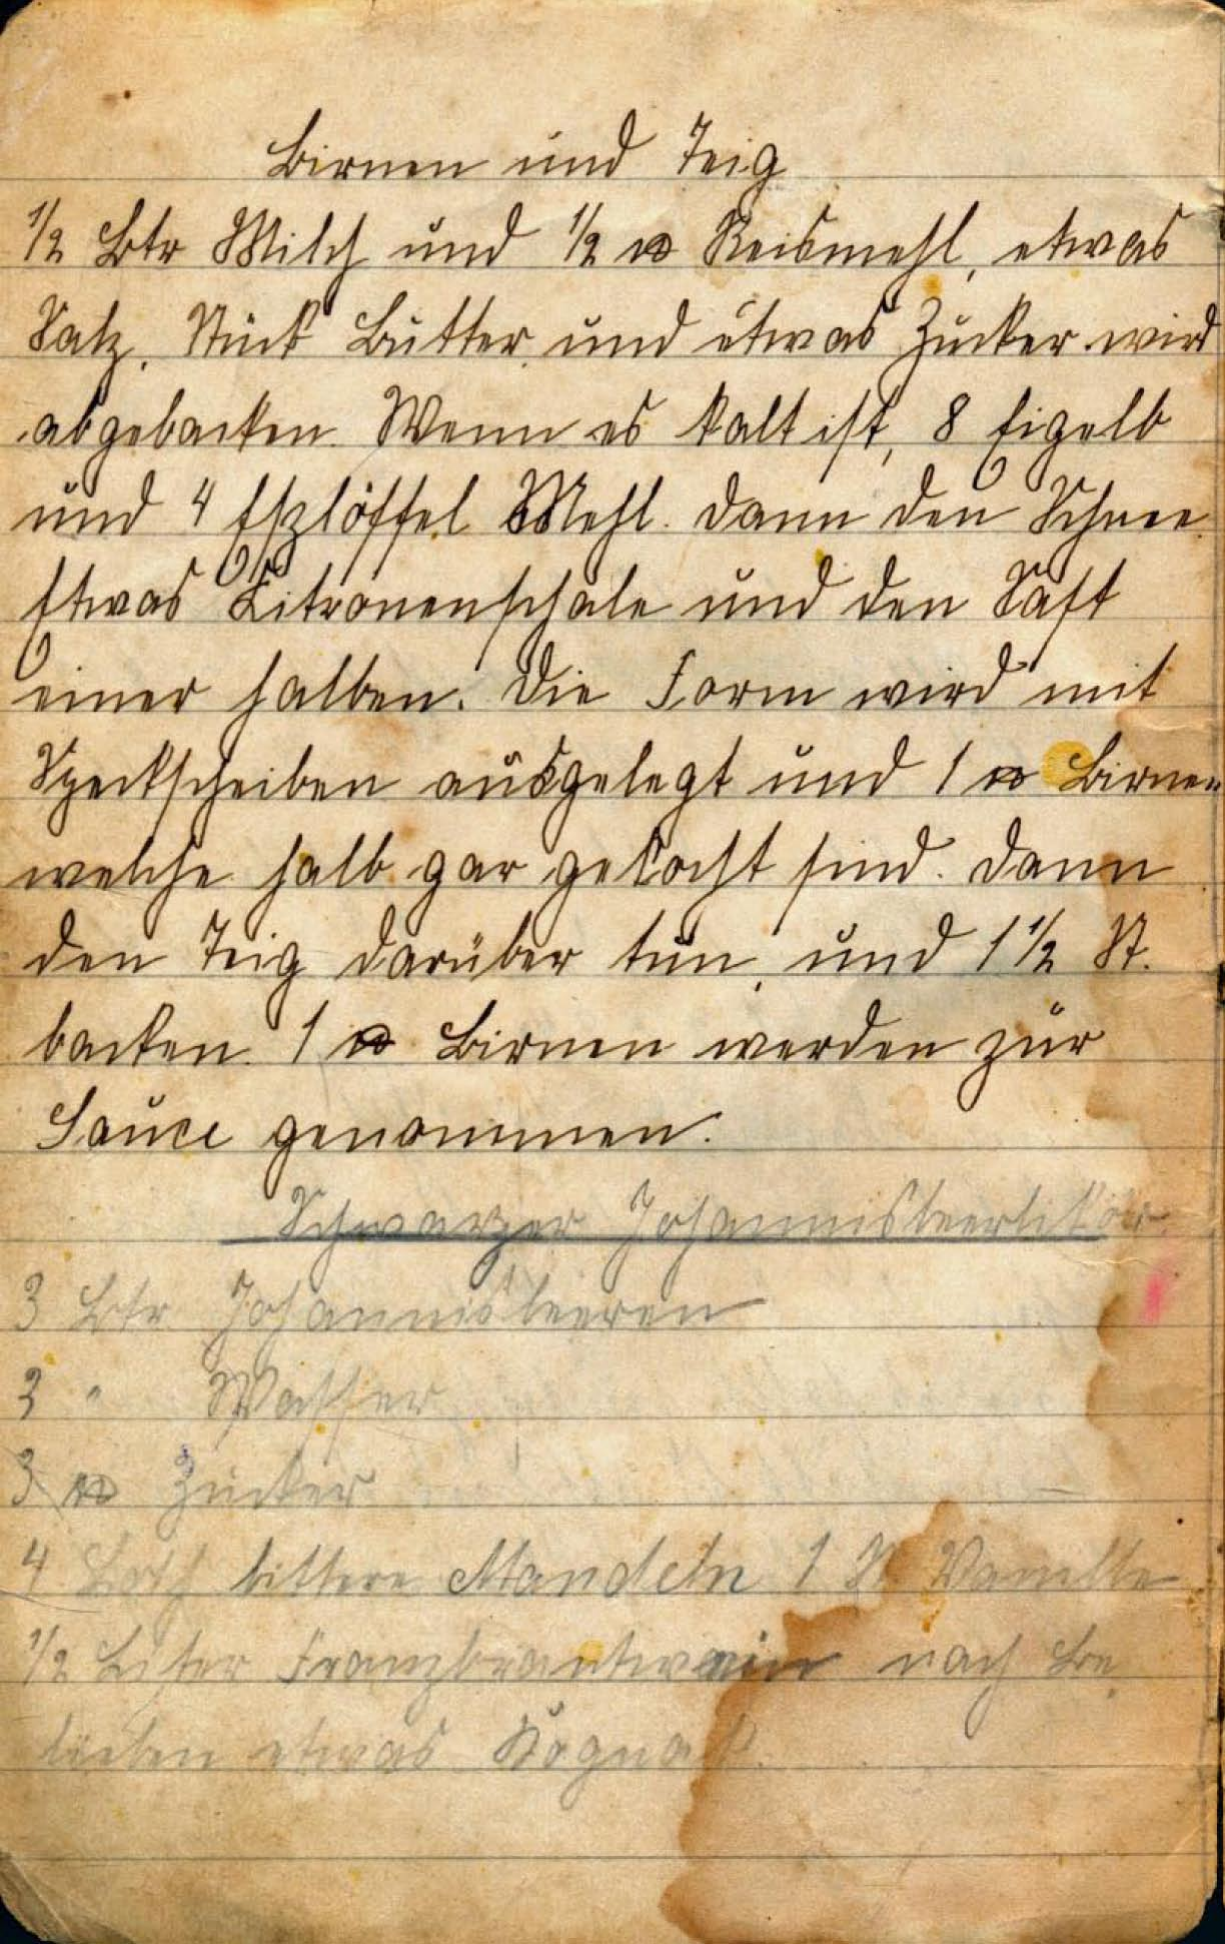 Birnen und Teig
1/2 Ltr Milch und 1/2 ℔ Reismehl, etwas
Salz, Stück Butter, und etwas Zucker wird
abgebacken. Wenn es kalt ist, 8 Eigelb
und 4 Eßlöffel Mehl. Dann den Schnee
Etwas Citronenschale und den Saft
einer halben. Die Form wird mit
Speckscheiben ausgelegt und 1 ℔ Birnen
welche halb gar gekocht sind. Dann
den Teig darüber tun, und 1 1/2 St.
backen. 1 ℔ Birnen werden zur
Sauce genommen.
Schwarzer Johannisbeerlikör
3 Ltr. Johannisbeeren
3 " Wasser
3 ℔ Zucker
4 Loth bittere Mandeln 1 St. Vanille
1/2 Liter Franzbrantwein nach Be
lieben etwas Kognak.